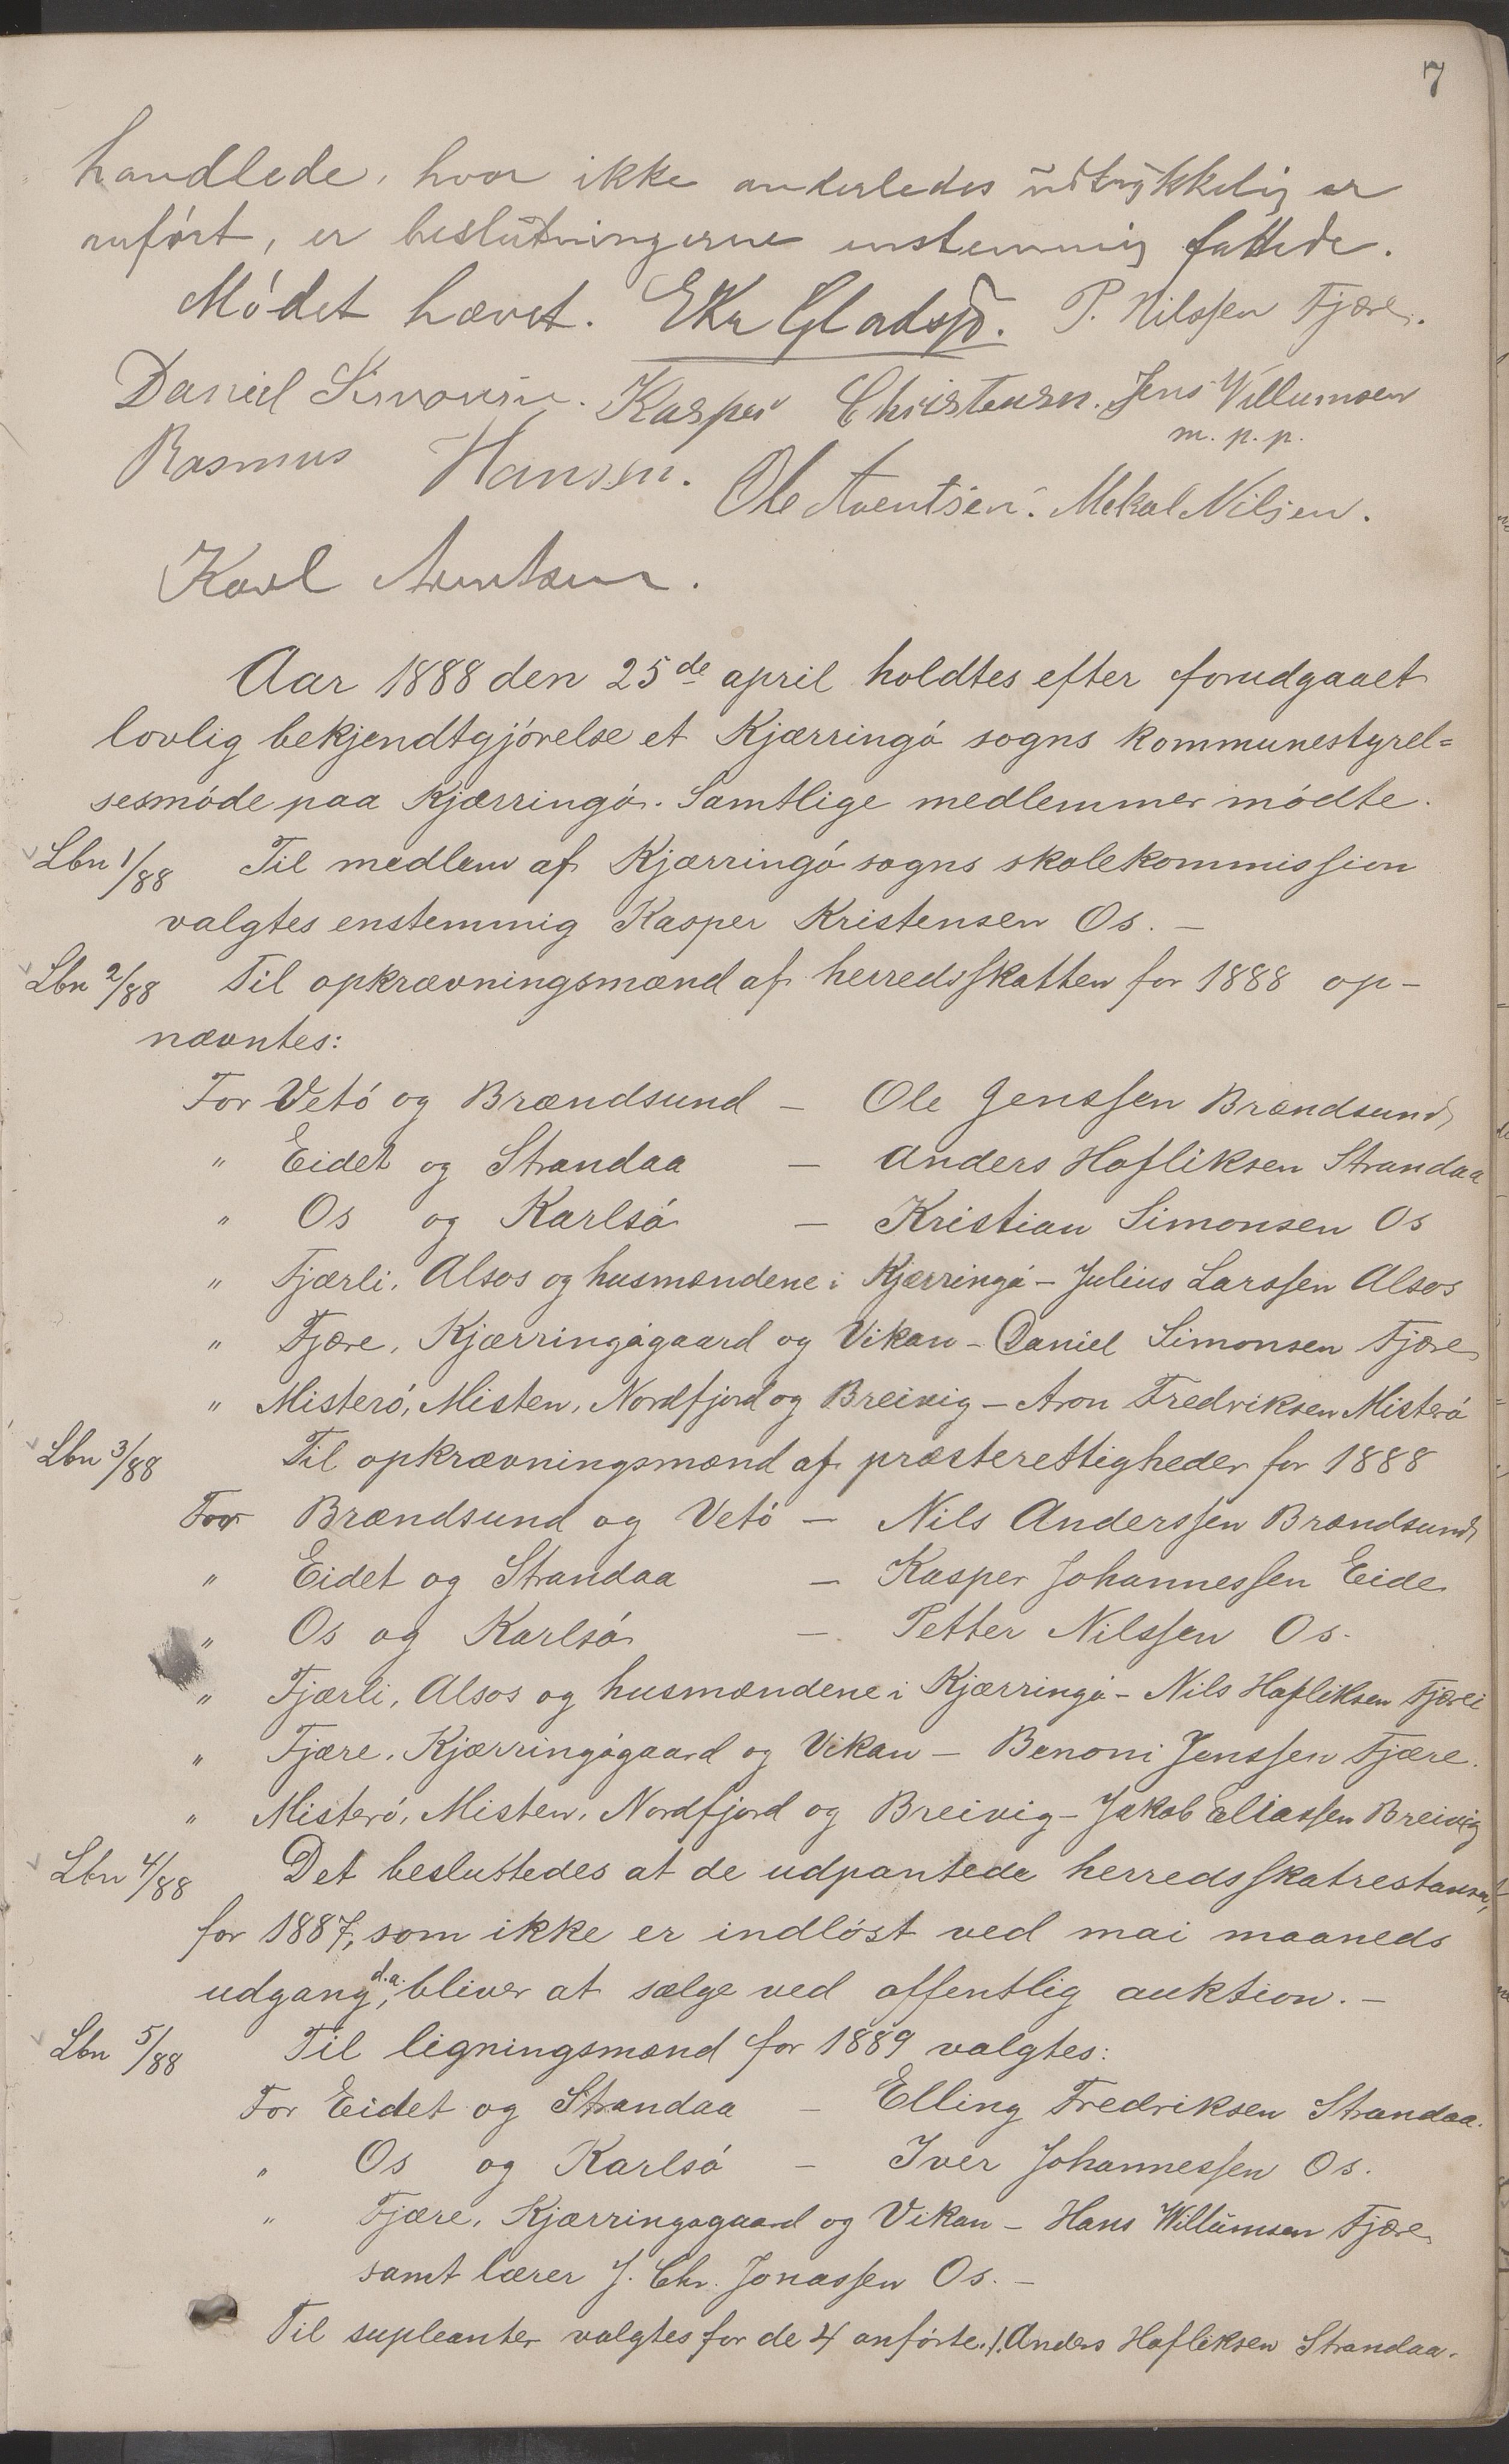 7
handlede, hvor ikke anderledes udtrykkelig er
anført, er beslutningerne enstemmig fattede.
Mødet hævet. EKr Gladsjø. P. Nilssen Fjære.
Daniel Simonsen. Kasper Christensen. Jens Villumsen
m. p. p.
Rasmus Hansen. Ole Arentsen. Mekal Nilsen.
Karl Arntsen.
Aar 1888 den 25de april holdtes efter forudgaaet
lovlig bekjendtgjørelse et Kjærringø sogns kommunestyrel=
sesmøde paa Kjærringø. Samtlige medlemmer mødte.
Lbn 1/88 Til medlem af Kjærringø sogns skolekommission
valgtes enstemmig Kasper Kristensen Os. –
Lbn 2/88 Til opkrævningsmænd af herredsskatten for 1888 op-
nævntes:
For Vetø og Brændsund – Ole Jenssen Brændsund
" Eidet og Strandaa – Anders Hofliksen Strandaa
" Os og Karlsø – Kristian Simonsen Os
" Fjærli, Alsos og husmændene i Kjærringø – Julius Larssen Alsos
" Fjære, Kjærringøgaard og Vikan – Daniel Simonsen Fjære
" Misterø, Misten, Nordfjord og Breivig – Aron Fredriksen Misterø
Lbn 3/88 Til opkrævningsmænd af præsterettigheder for 1888
For Brændsund og Vetø – Nils Anderssen Brændsund
" Eidet og Strandaa – Kasper Johannessen Eide
" Os og Karlsø – Petter Nilssen Os.
" Fjærli, Alsos og husmændene i Kjærringø – Nils Hofliksen Fjærli
" Fjære, Kjærringøgaard og Vikan – Benoni Jenssen Fjære.
" Misterø, Misten, Nordfjord og Breivig – Jakob Eliassen Breivig
Lbn 4/88 Det besluttedes at de udpantede herredsskatrestanser,
for 1887, som ikke er indløst ved mai maaneds
udgang d.a., bliver at sælge ved offentlig auktion. –
Lbn 5/88 Til ligningsmænd for 1889 valgtes:
For Eidet og Strandaa – Elling Fredriksen Strandaa.
" Os og Karlsø – Iver Johannessen Os.
" Fjære, Kjærringøgaard og Vikan – Hans Willumsen Fjære
samt lærer J. Chr. Jonassen Os. –
Til supleanter valgtes for de 4 anførte. 1. Anders Hofliksen Strandaa.